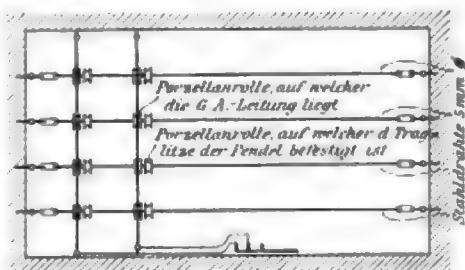 Porzellanrolle, auf welcher
die G. A.-Leitung liegt
Porzellanrolle, auf welcher d. Trag-
litze der Pendel befestigt ist
Stahldrähte 5 mm